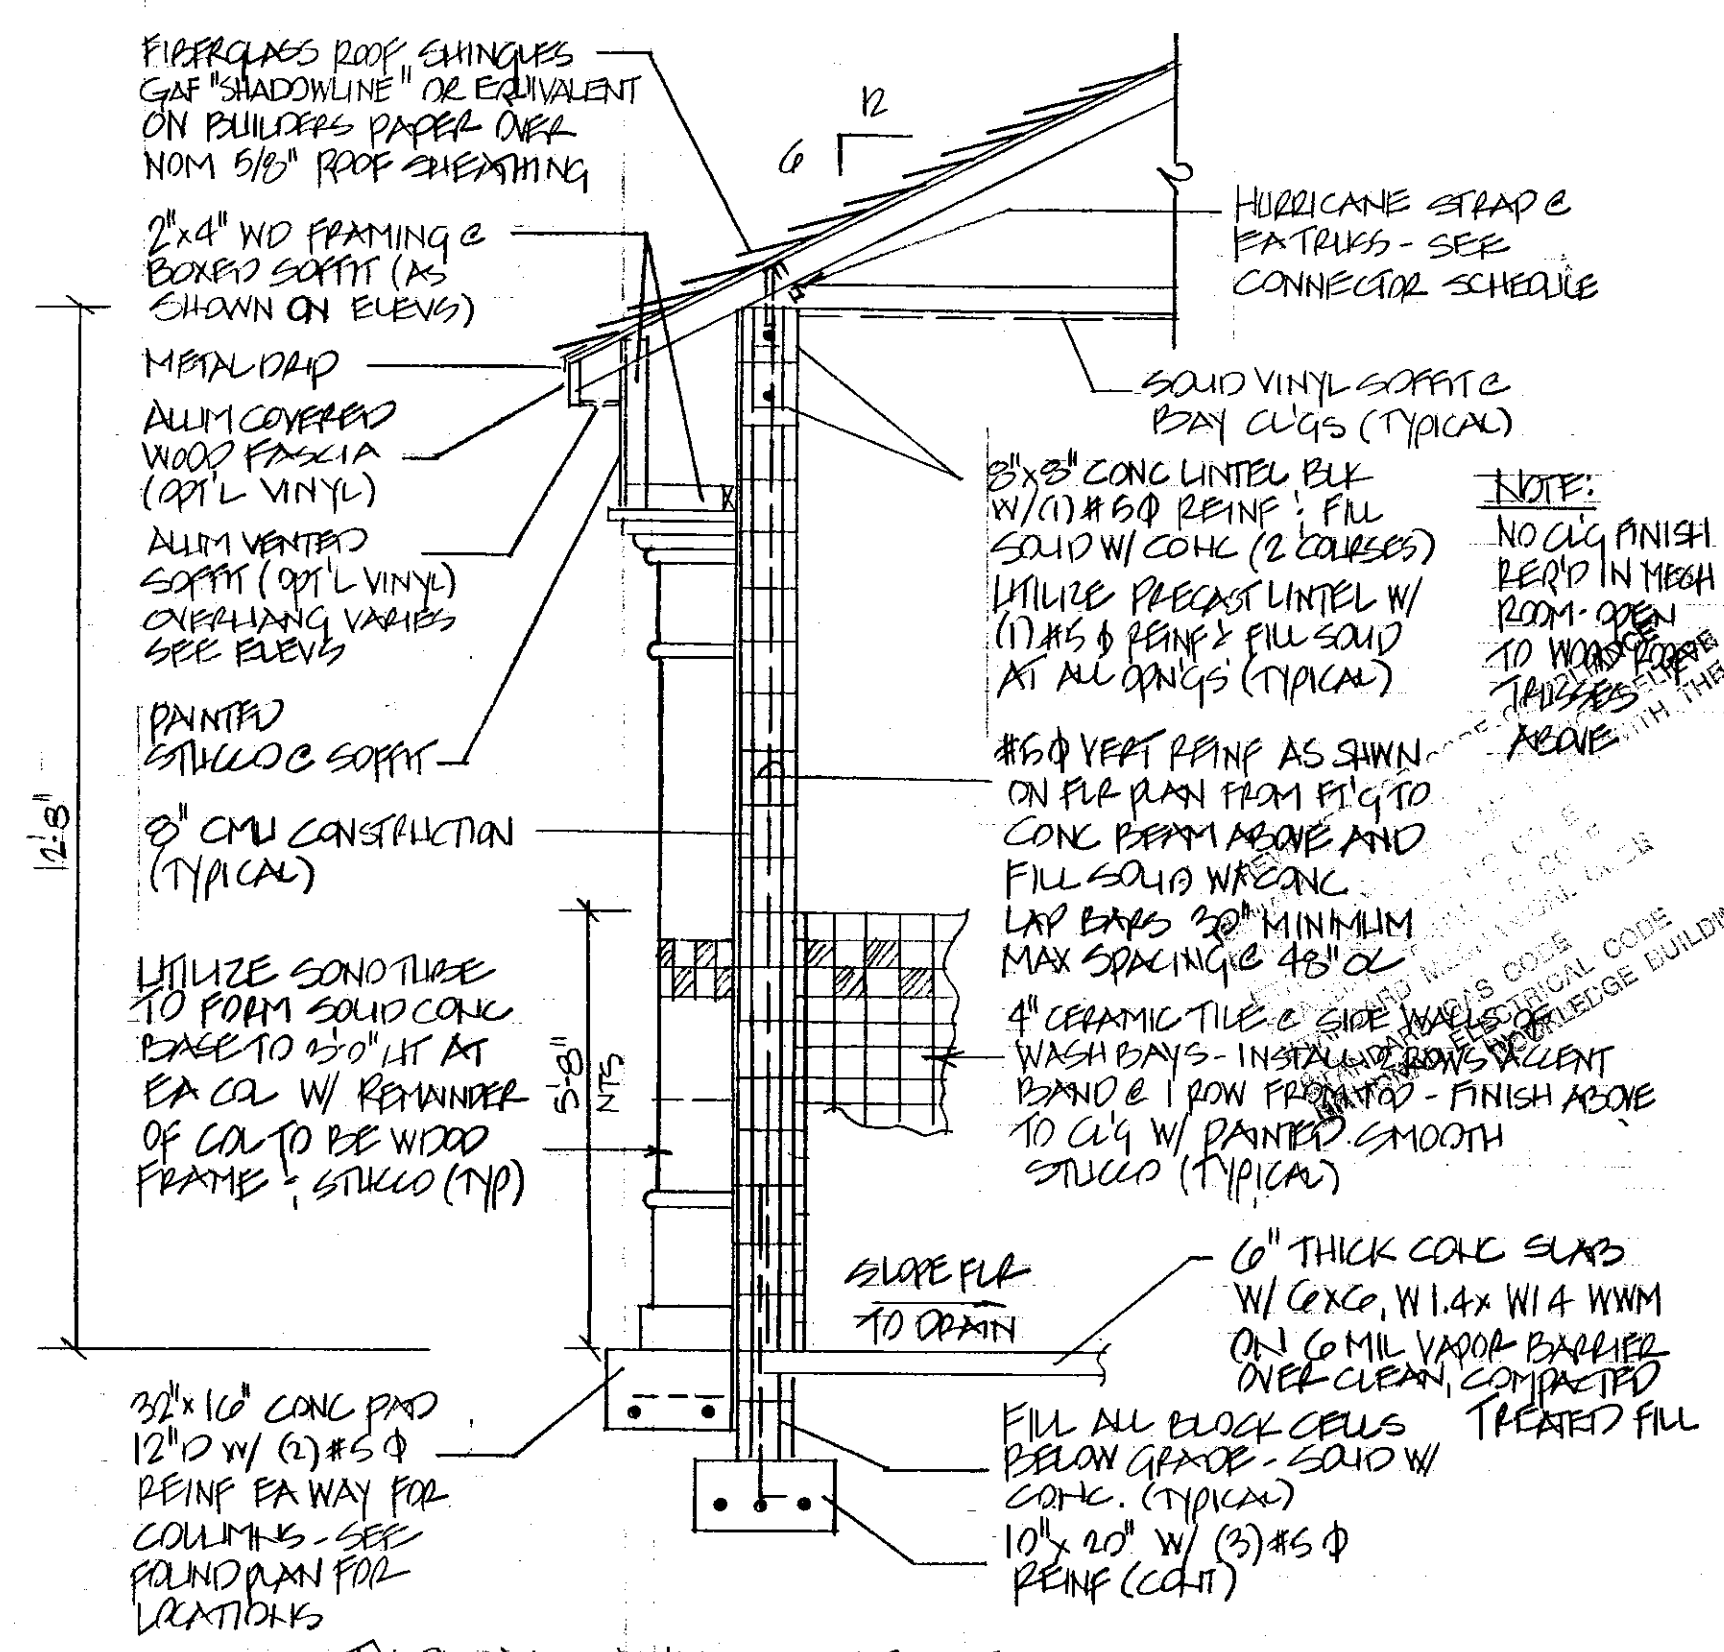 FIBERGLASS ROOF SHINGLES
GAF "SHADOWLINE" OR EQUIVALENT
ON BUILDERS PAPER OVER
NOM 5/8" ROOF SHEATHING
2"x4" WD FRAMING @
BOXED SOFFIT (AS
SHOWN ON ELEVS)
METAL DRIP
ALUM COVERED
WOOD FASCIA
(OPT'L VINYL)
ALUM VENTED
SOFFIT (OPT'L VINYL)
OVERHANG VARIES
SEE ELEVS
PAINTED
STUCCO @ SOFFIT
8" CMU CONSTRUCTION
(TYPICAL)
UTILIZE SONOTUBE
TO FORM SOLID CONC
BASE TO 3'-0" HT AT
EA COL W/ REMAINDER
OF COL TO BE WOOD
FRAME & STUCCO (TYP)
32"x16" CONC PAD
12"D W/ (2) #5 Φ
REINF EA WAY FOR
COLUMNS - SEE
FOUND PLAN FOR
LOCATIONS
12'-8"
5'-8"
NTS
12
6
SLOPE FLR
TO DRAIN
HURRICANE STRAP @
EA TRUSS - SEE
CONNECTOR SCHEDULE
SOLID VINYL SOFFIT @
BAY CL'GS (TYPICAL)
8"x8" CONC LINTEL BLK
W/(1) #5 Φ REINF & FILL
SOLID W/ CONC (2 COURSES)
UTILIZE PRECAST LINTEL W/
(1) #5 Φ REINF & FILL SOLID
AT ALL OPN'GS (TYPICAL)
NOTE:
NO CL'G FINISH
REQ'D IN MECH
ROOM - OPEN
TO WOOD ROOF
TRUSSES
ABOVE
#5 Φ VERT REINF AS SHWN
ON FLR PLAN FROM FT'G TO
CONC BEAM ABOVE AND
FILL SOLID W/ CONC
LAP BARS 30" MINIMUM
MAX SPACING @ 48" OC
4" CERAMIC TILE @ SIDE WALLS OF
WASH BAYS - INSTALL 2 ROWS ACCENT
BAND @ 1 ROW FROM TOP - FINISH ABOVE
TO CL'G W/ PAINTED SMOOTH
STUCCO (TYPICAL)
GAS CODE
ELECTRICAL CODE
6" THICK CONC SLAB
W/ 6x6, W1.4x W1.4 WWM
ON 6 MIL VAPOR BARRIER
OVER CLEAN, COMPACTED
TREATED FILL
FILL ALL BLOCK CELLS
BELOW GRADE - SOLID W/
CONC. (TYPICAL)
10"x 20" W/ (3) #5 Φ
REINF (CONT)